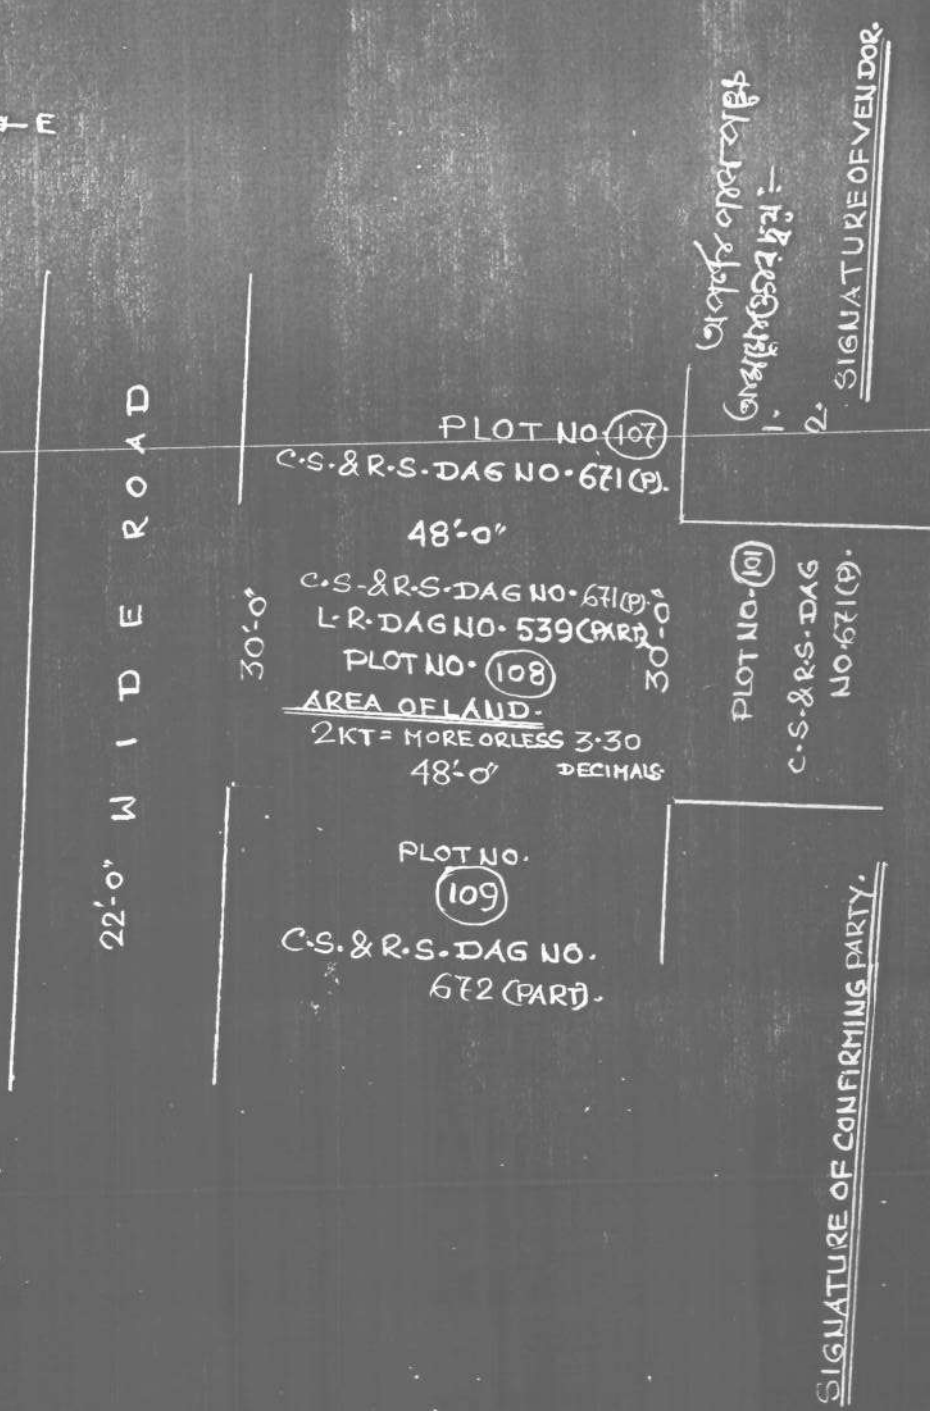 E
22'-0" WIDE ROAD
PLOT NO. 107
C.S. & R.S. DAG NO. 671(P).
48'-0"
30'-0"
C.S-& R.S-DAG NO. 671(P).
L-R-DAG NO. 539 (PART)
PLOT NO. 108
30'-0"
AREA OF LAND.
2KT = MORE OR LESS 3.30
DECIMALS
48'-0"
PLOT NO.
109
C.S. & R.S. DAG NO.
672 (PART).
PLOT NO. 101
C.S. & R.S. DAG
NO. 671(P).
1.
2.
SIGNATURE OF VENDOR.
SIGNATURE OF CONFIRMING PARTY.